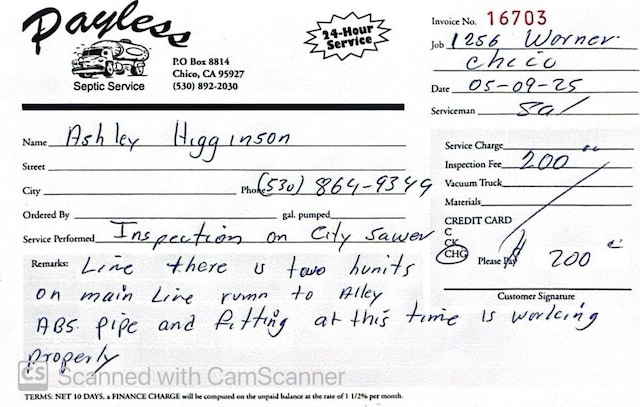 Payless
Septic Service
24-Hour
Service
P.O Box 8814
Chico, CA 95927
(530) 892-2030
Invoice No. 16703
Job 1256 Warner
Chico
Date 05-09-25
Serviceman Sal
Name Ashley Higginson
Street
City Phone (530) 864-9349
Ordered By gal. pumped
Service Performed Inspection on City Sawer
Remarks: Line there is two hunits
on main Line runn to Alley
ABS. pipe and fitting at this time is working
properly
Service Charge
Inspection Fee 200
Vacuum Truck
Materials
CREDIT CARD
C
CK
CHG Please Pay $ 200
Customer Signature
CS Scanned with CamScanner
TERMS: NET 10 DAYS, a FINANCE CHARGE will be computed on the unpaid balance at the rate of 1 1/2% per month.